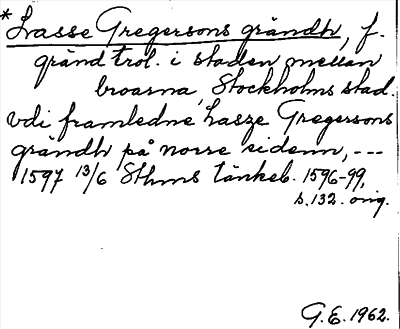 *Lasse Gregersons grändh, f.
gränd trol. i staden mellan
broarna, Stockholms stad.
vdi framledne Lasze Gregersons
grändh på norre sidenn, ---
1597 13/6 Sthms tänkeb. 1596-99,
s. 132. orig.
G.E. 1962.